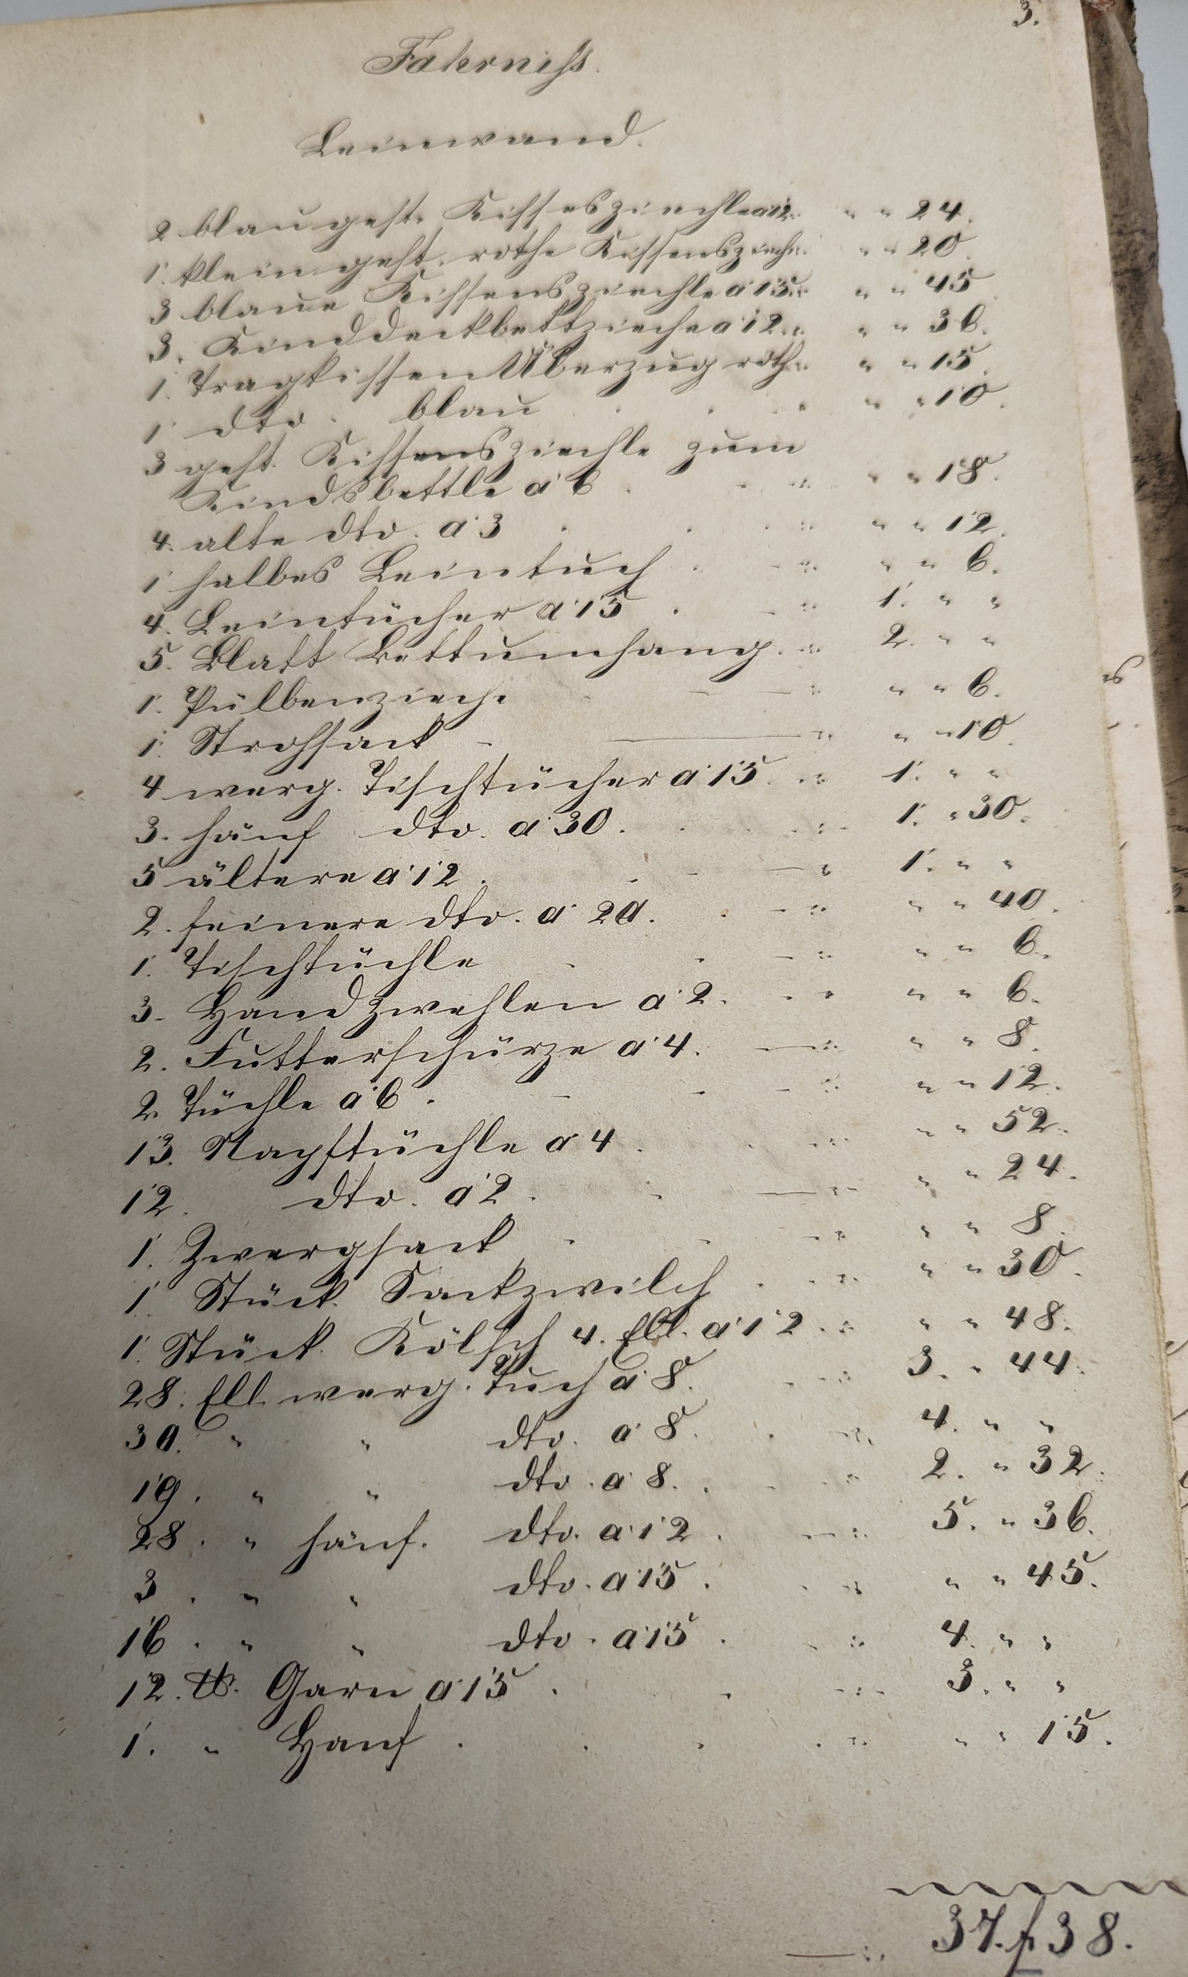 3.
Fahrniss.
Leinwand.
2 blau gest. Kissesziechle a 12. " " 24.
1. klein gest. rothe Kissensziech. " " 20
3 blaue Kissensziechle a 15. " " 45
3. Kinddeckbettzieche a 12. " " 36.
1. Tragkissen Überzug roth. " " 15.
1. dto. blau " " 10.
3 gest. Kissensziechle zum
Kindsbettle a 6 . " " 18.
4. alte dto. a 3 . " " 12.
1 halbes Leintuch . " " 6.
4. Leintücher a 15 . 1. " "
5. Blatt Bettumhang. 2. " "
1. Pülbenzieche " " 6.
1. Strohsack " " 10.
4 werg. Tischtücher a 15 1. " "
3. hänf dto. a 30. 1. " 30.
5 ältere a 12. 1. " "
2. feinere dto. a 20. " " 40.
1. Tischtüchle " " 6.
3. Handzwehlen a 2. " " 6.
2. Futterschürze a 4. " " 8.
2. Tüchle a 6 . " " 12.
13. Napftüchle a 4 . " " 52.
12. dto. a 2 . " " 24.
1. Zwergsack " " 8.
1. Stück Sackzwilch " " 30.
1. Stück Kölsch 4. Ell. a 12. " " 48.
28. Ell. werg. Tuch a 8. 3. " 44.
30. " " dto. a 8. 4. " "
19. " " dto. a 8. 2. " 32.
28. " hänf. dto. a 12. 5. " 36.
3 . " " dto. a 15 . " " 45.
16 . " " dto. a 15 . 4. " "
12. ℔. Garn a 15 . 3. " "
1. " Hanf . " " 15.
37. f 38.